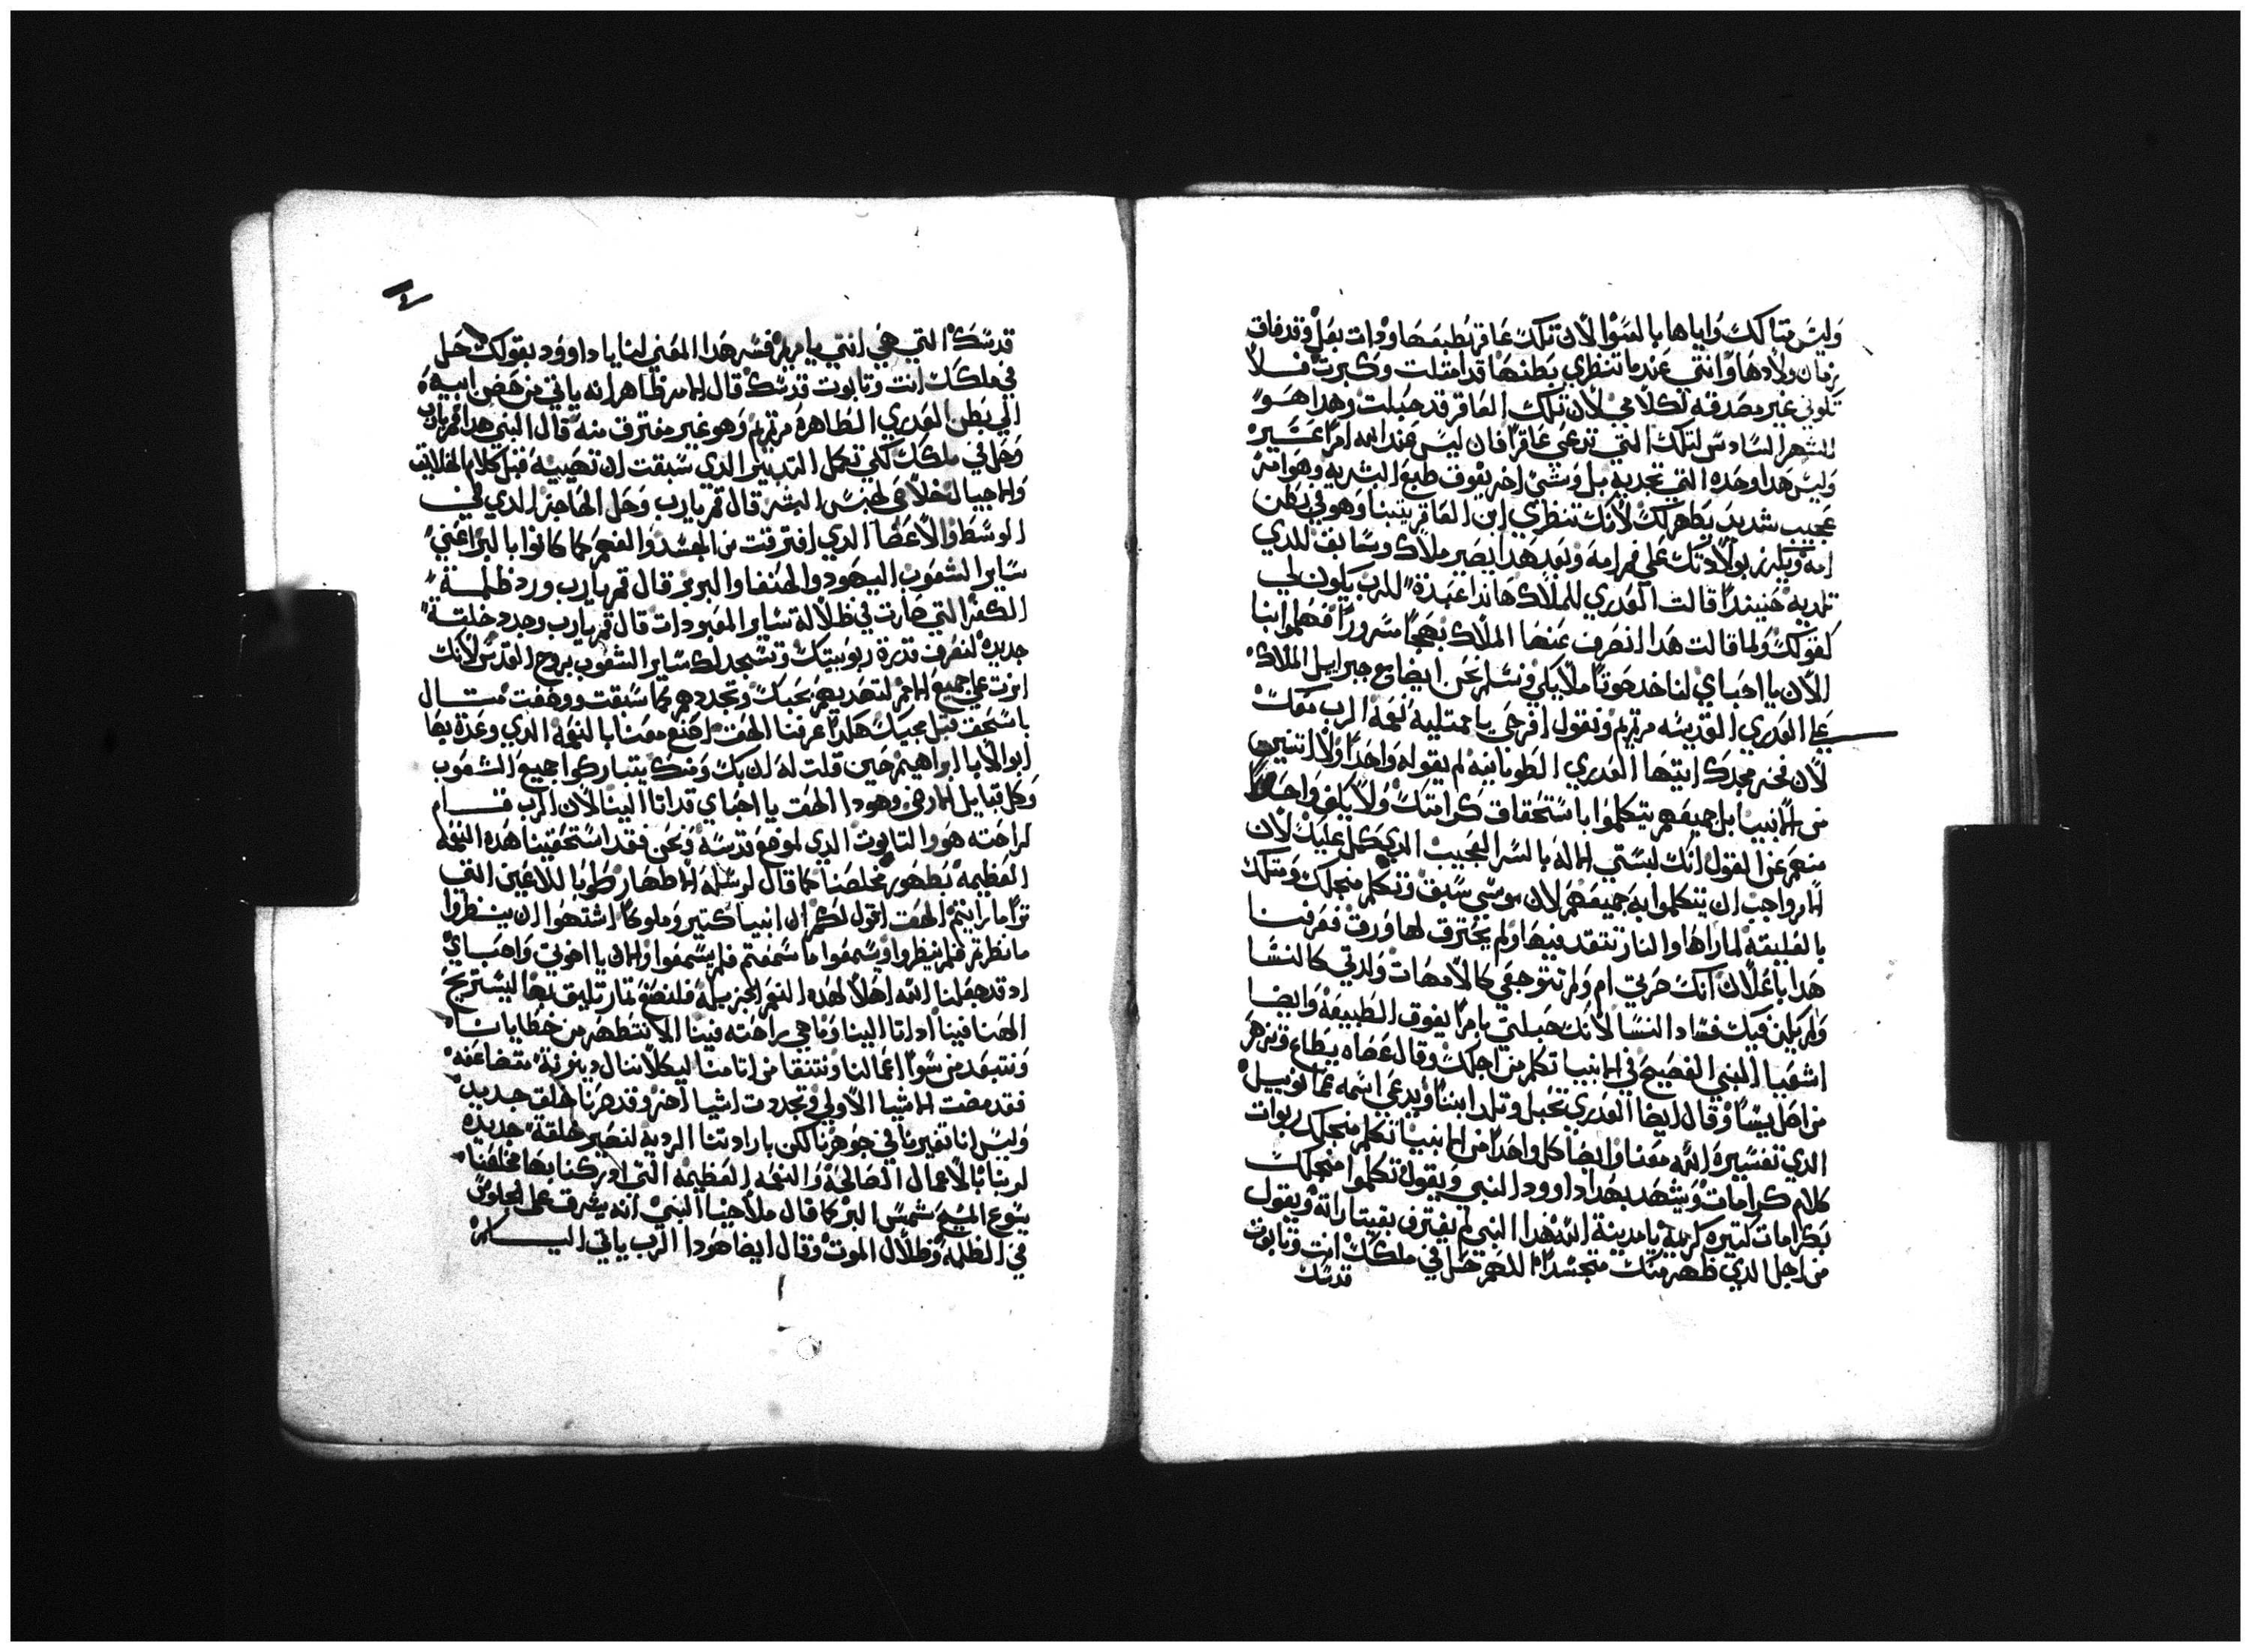 وليس حبالك واياها بالسوا لان تلك عاقر بطبعها ودات بعل وقد فات
زمان ولادها وانتي عند ما تنظري بطنها قد امتلت وكبرت فلا
تكوني غير مصدقه لكلامي لان تلك العاقر قد حبلت وهدا هو
الشهر السادس لتلك التي تدعي عاقرا فان ليس عند الله امرا عسير
وليس هدا وحده التي تجديه بل وشي اخر يفوق طبع البشريه وهو امر
عجيب شديد يظهر لك لانك تنظري ابن العاقر يتنبا وهو في بطن
امه ويكرز بولادتك علي فم امه وبعد هدا يصير ملاك وسابق للدي
تلديه حينيدا قالت العدري للملاك هاندا عبدة للرب يكون لي
كقولك ولما قالت هدا انصرف عنها الملاك بهجا مسرورا فهلموا بنا
الان يا احباي لناخد صوتا ملايكي ونسلم نحن ايضا مع جبراييل الملاك
علي العدري القديسه مرتمريم ونقول افرحي يا ممتليه نعمه الرب معك
لان نحن مجدك ايتها العدري الطوبانيه لم يقوله واحدا ولا اتنين
من الانبيا بل جميعهم يتكلموا باستحقاق كرامتك ولا يكف واحدا
منهم عن القول انك لبستي الاله بالسر العجيب الدي كمل عليك لان
امر واجب ان يتكلموا به جميعهم لان موسي سبق وتكلم من اجلك ومتلك
بالعليقه لما راها والنار تتقد فيها ولم يحترق لها ورق فعرفنا
هدا باعلان انك صرتي ام ولم تتوجعي كالامهات ولدتي كالنسا
ولم يكن فيك فساد النسا لانك حبلتي بامرا يفوق الطبيعه وايضا
اشعيا النبي الفصيح في الانبيا تكلم من اجلك وقال عصاه يطلع وتزهر
من اصل يسا وقال ايضا العدري تحبل وتلد ابنا ويدعي اسمه عمانوييل
الدي تفسيره الله معنا وايضا كل واحدا من الانبيا تكلم من اجلك ربوات
كلام كرامات ويشهد بهدا داوود النبي ويقول تكلموا من اجلك
بكرامات كتيره كريمه يا مدينة الله هدا النبي لم يفتر من بقيتاراته ويقول
من اجل الدي ظهر منك متجسدا اللهم حل في ملكك انت وتابوت
قدسك
قدسك التي هي انتي يا مريم فسر هدا المعني لنا يا داوود بقولك حل
في ملكك انت وتابوت قدسك قال الامر ظاهر انه ياتي من حضن ابيه
الي بطن العدري الطاهره مرتمريم وهو غير مفترق منه قال النبي هدا قم يارب
وحل في ملكك لكي تكمل التدبير الدي سبقت ان تصيبه قبل كلام الخلايق
والاجيال خلاصا لجنس البشر قال قم يارب وحل الحاجز الدي في
الوسط والاعضا الدي افترقت من الجسد والفهم كما كانوا بالبر اعني
ساير الشعوب اليهود والحنفا والبربر قال قم يارب ورد ظلمة
الكفر التي صارت في ظلالة ساير المعبودات قال قم يارب وجدد خلقة
جديده لتعرف قدرة ربوبيتك وتسجد لك ساير الشعوب بروح القدس لانك
ابرت علي جميع الامم لتهديهم بحبك وتجددهم كما سبقت ووضعت متال
باسحق قبل مجيك هكدا عرفنا الهنا اصنع معنا بالنعمه الدي وعدة بها
ابو الابا ابراهيم حين قلت له ان بك ومنك يتباركوا جميع الشعوب
وكل قبايل الارض وهودا الهنا يا احباي قد اتا الينا لان الرب قام
لراحته هو والتابوت الدي لموضع قدسه ونحن فقد استحقينا هده النعمه
العظيمه بظهور مخلصنا كما قال لرسله الاطهار طوبا للاعين التي
ترا ما رايتم الحق اقول لكم ان انبيا كتير وملوكا اشتهوا ان ينظروا
ما نظرتم فلم ينظروا ويسمعوا ما سمعتم فلم يسمعوا والان يا اخوتي واحباي
اد قد جعلنا الله اهلا لهده النعم الجزيله فلنصنع تمار تليق بها ليستريح
الهنا فينا ادا اتا الينا وما هي راحته فينا الا نتطهر من خطايانا
ونتبعد من سوا اعمالنا ونتنقا من اتامنا ليكلا ننال دينونة متضاعفه
فقد مضت الاشيا الاولي وتجددت اشيا اخر وقد صرنا خلق جديد
وليس اننا تغيرنا في جوهرنا لكن بارادتنا الرديه لنصير خلقة جديده
لربنا بالاعمال الصالحه والنعمه العظيمه التي ادركنا بها مخلصنا
يسوع المسيح شمس البر كما قال ملاخيا النبي انه يشرق علي الجلوس
في الظلمه وظلال الموت وقال ايضا هودا الرب ياتي اليكم